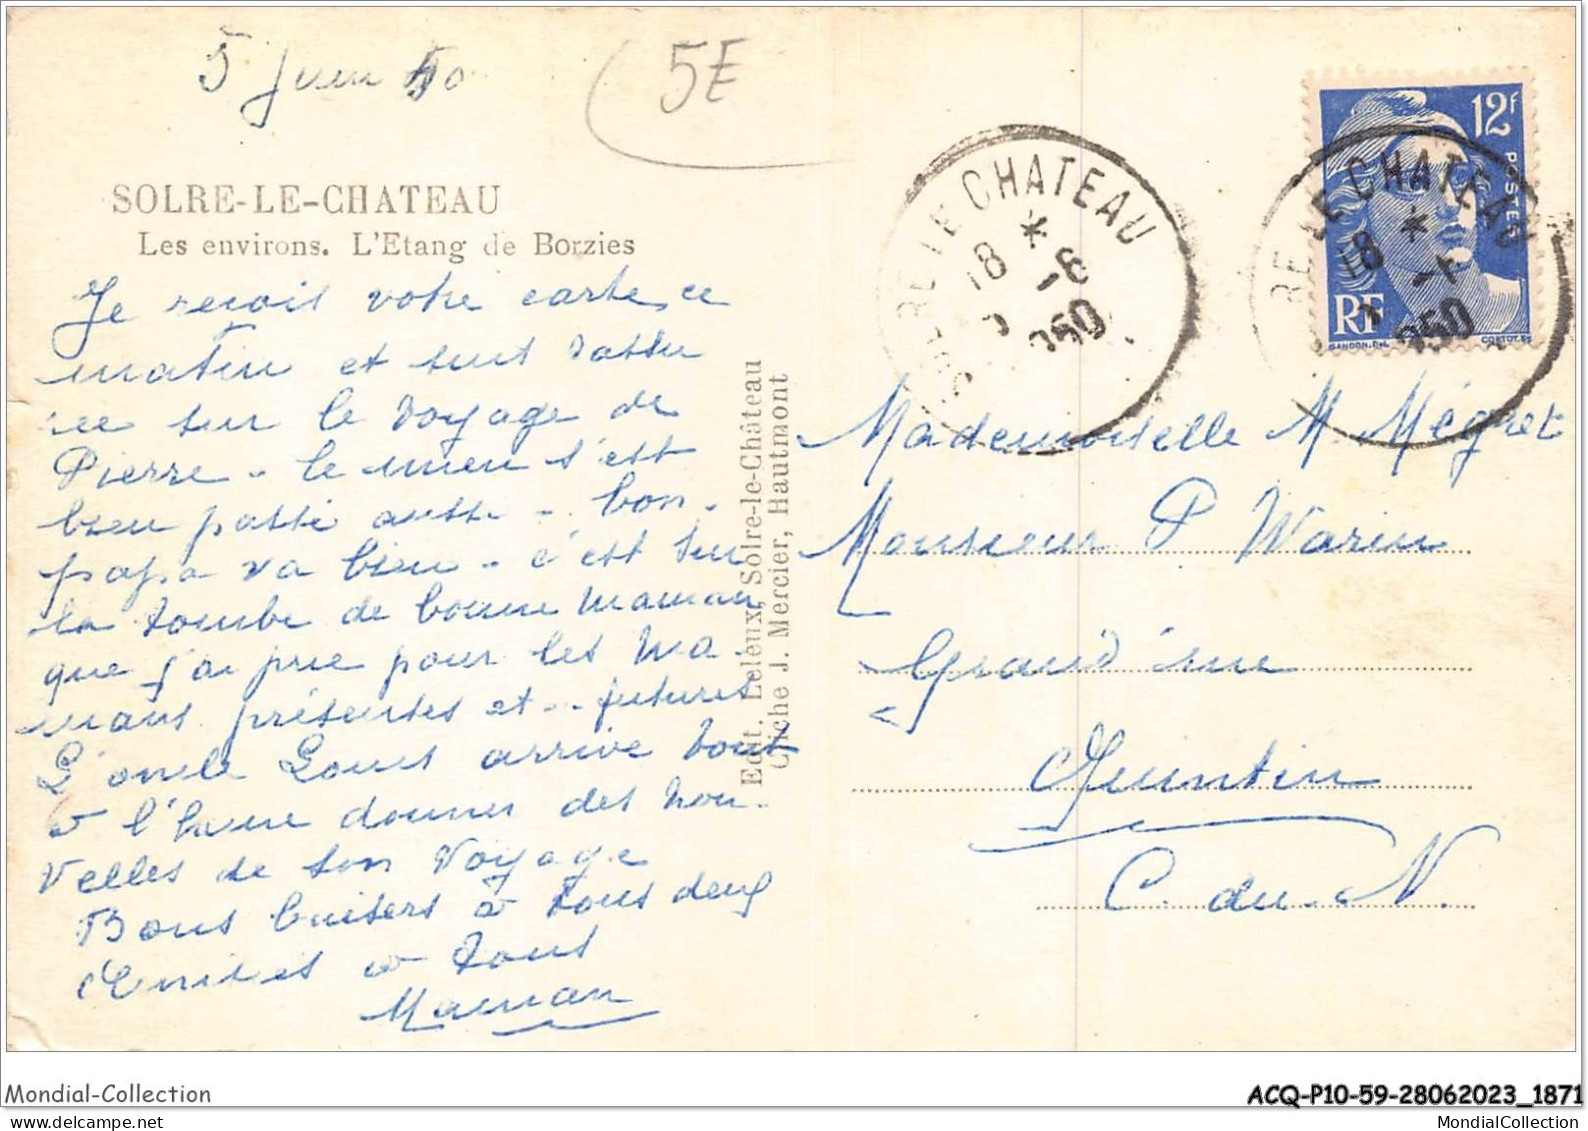 5 Juin 50
5E
SOLRE-LE-CHATEAU
Les environs. L'Etang de Borzies
Je reçois votre carte ce
matin et suis rassu
rée sur le voyage de
Pierre - le mien s'est
bien passé aussi - bon-
papa va bien - c'est sur
la tombe de bonne maman
que j'ai prié pour les ma
mans présentes et .. futures
L'oncle Louis arrive tout
à l'heure donner des nou-
velles de son voyage
Bons baisers à tous deux
à tous
Maman
Edit. Leleux, Solre-le-Château
Cliché J. Mercier, Hautmont
SOLRE LE CHATEAU
18 *
-6
950
12F
POSTES
RF
GANDON.DEL.
CORTOT.SC
RE LE CHATEAU
18 *
950
Mademoiselle M Mégret
Monsieur P Warin
Quintin
C. du. N.
Mondial-Collection
ACQ-P10-59-28062023_1871
MondialCollection